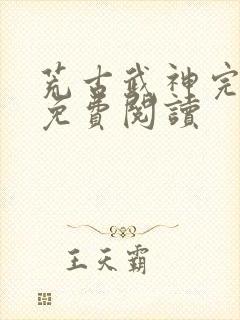 荒古武神完
免費閱讀
王天霸